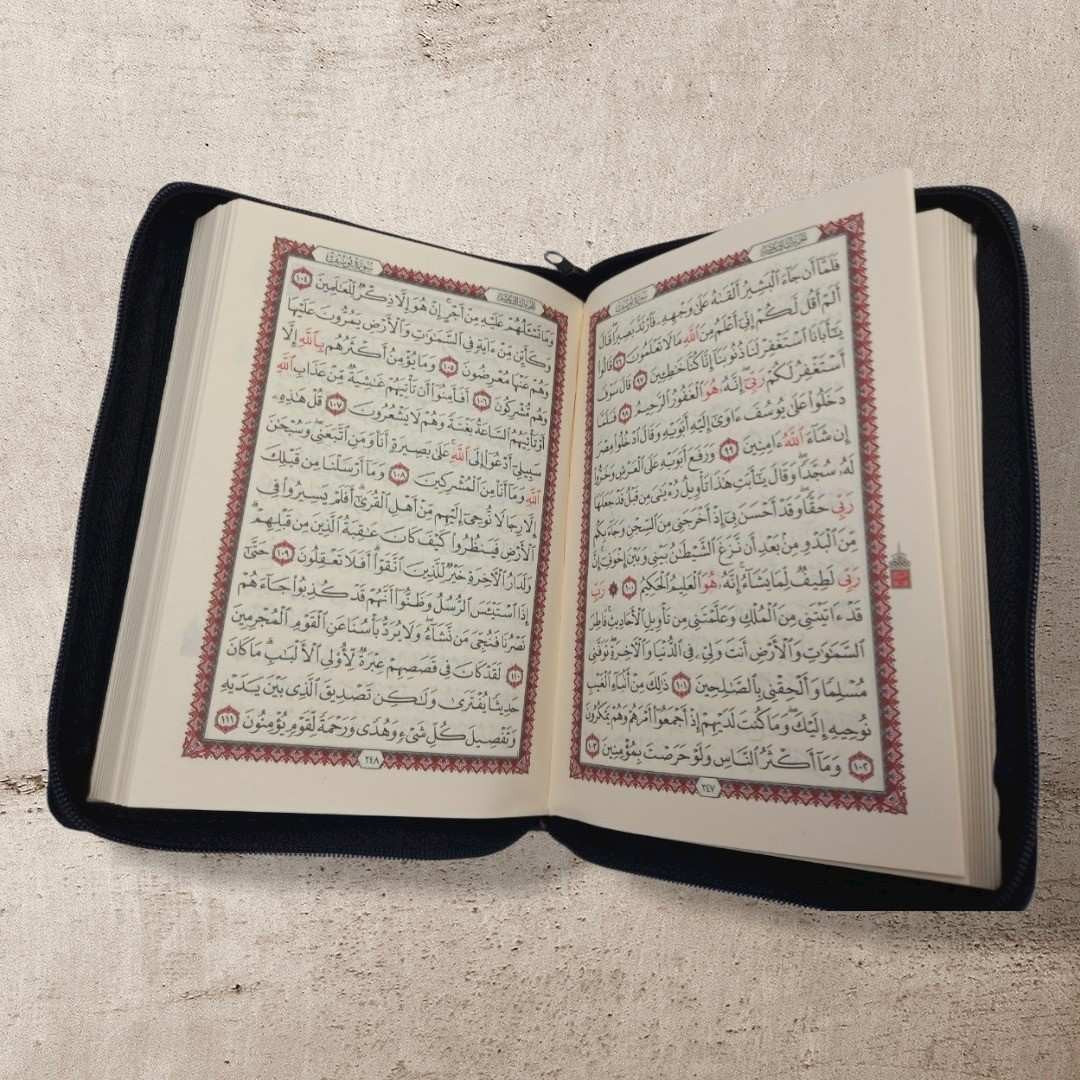 الجزء الثالث عشر
سورة يوسف
فَلَمَّآ أَن جَآءَ ٱلْبَشِيرُ أَلْقَىٰهُ عَلَىٰ وَجْهِهِۦ فَٱرْتَدَّ بَصِيرًا قَالَ
أَلَمْ أَقُل لَّكُمْ إِنِّىٓ أَعْلَمُ مِنَ ٱللَّهِ مَا لَا تَعْلَمُونَ ٩٦ قَالُوا۟
يَٰٓأَبَانَا ٱسْتَغْفِرْ لَنَا ذُنُوبَنَآ إِنَّا كُنَّا خَٰطِـِٔينَ ٩٧ قَالَ سَوْفَ
أَسْتَغْفِرُ لَكُمْ رَبِّىٓ إِنَّهُۥ هُوَ ٱلْغَفُورُ ٱلرَّحِيمُ ٩٨ فَلَمَّا
دَخَلُوا۟ عَلَىٰ يُوسُفَ ءَاوَىٰٓ إِلَيْهِ أَبَوَيْهِ وَقَالَ ٱدْخُلُوا۟ مِصْرَ
إِن شَآءَ ٱللَّهُ ءَامِنِينَ ٩٩ وَرَفَعَ أَبَوَيْهِ عَلَى ٱلْعَرْشِ وَخَرُّوا۟
لَهُۥ سُجَّدًا ۖ وَقَالَ يَٰٓأَبَتِ هَٰذَا تَأْوِيلُ رُءْيَٰىَ مِن قَبْلُ قَدْ جَعَلَهَا
رَبِّى حَقًّا ۖ وَقَدْ أَحْسَنَ بِىٓ إِذْ أَخْرَجَنِى مِنَ ٱلسِّجْنِ وَجَآءَ بِكُم
مِّنَ ٱلْبَدْوِ مِنۢ بَعْدِ أَن نَّزَغَ ٱلشَّيْطَٰنُ بَيْنِى وَبَيْنَ إِخْوَتِىٓ ۚ إِنَّ
رَبِّى لَطِيفٌ لِّمَا يَشَآءُ ۚ إِنَّهُۥ هُوَ ٱلْعَلِيمُ ٱلْحَكِيمُ ١٠٠ ۞ رَبِّ
قَدْ ءَاتَيْتَنِى مِنَ ٱلْمُلْكِ وَعَلَّمْتَنِى مِن تَأْوِيلِ ٱلْأَحَادِيثِ ۚ فَاطِرَ
ٱلسَّمَٰوَٰتِ وَٱلْأَرْضِ أَنتَ وَلِىِّۦ فِى ٱلدُّنْيَا وَٱلْءَاخِرَةِ ۖ تَوَفَّنِى
مُسْلِمًا وَأَلْحِقْنِى بِٱلصَّٰلِحِينَ ١٠١ ذَٰلِكَ مِنْ أَنۢبَآءِ ٱلْغَيْبِ
نُوحِيهِ إِلَيْكَ ۖ وَمَا كُنتَ لَدَيْهِمْ إِذْ أَجْمَعُوٓا۟ أَمْرَهُمْ وَهُمْ يَمْكُرُونَ
١٠٢ وَمَآ أَكْثَرُ ٱلنَّاسِ وَلَوْ حَرَصْتَ بِمُؤْمِنِينَ ١٠٣
٢٤٧
الجزء الثالث عشر
سورة يوسف
وَمَا تَسْـَٔلُهُمْ عَلَيْهِ مِنْ أَجْرٍ ۚ إِنْ هُوَ إِلَّا ذِكْرٌ لِّلْعَٰلَمِينَ ١٠٤
وَكَأَيِّن مِّنْ ءَايَةٍ فِى ٱلسَّمَٰوَٰتِ وَٱلْأَرْضِ يَمُرُّونَ عَلَيْهَا
وَهُمْ عَنْهَا مُعْرِضُونَ ١٠٥ وَمَا يُؤْمِنُ أَكْثَرُهُم بِٱللَّهِ إِلَّا
وَهُم مُّشْرِكُونَ ١٠٦ أَفَأَمِنُوٓا۟ أَن تَأْتِيَهُمْ غَٰشِيَةٌ مِّنْ عَذَابِ ٱللَّهِ
أَوْ تَأْتِيَهُمُ ٱلسَّاعَةُ بَغْتَةً وَهُمْ لَا يَشْعُرُونَ ١٠٧ قُلْ هَٰذِهِۦ
سَبِيلِىٓ أَدْعُوٓا۟ إِلَى ٱللَّهِ ۚ عَلَىٰ بَصِيرَةٍ أَنَا۠ وَمَنِ ٱتَّبَعَنِى ۖ وَسُبْحَٰنَ
ٱللَّهِ وَمَآ أَنَا۠ مِنَ ٱلْمُشْرِكِينَ ١٠٨ وَمَآ أَرْسَلْنَا مِن قَبْلِكَ
إِلَّا رِجَالًا نُّوحِىٓ إِلَيْهِم مِّنْ أَهْلِ ٱلْقُرَىٰٓ ۗ أَفَلَمْ يَسِيرُوا۟ فِى
ٱلْأَرْضِ فَيَنظُرُوا۟ كَيْفَ كَانَ عَٰقِبَةُ ٱلَّذِينَ مِن قَبْلِهِمْ ۗ
وَلَدَارُ ٱلْءَاخِرَةِ خَيْرٌ لِّلَّذِينَ ٱتَّقَوْا۟ ۗ أَفَلَا تَعْقِلُونَ ١٠٩ حَتَّىٰٓ
إِذَا ٱسْتَيْـَٔسَ ٱلرُّسُلُ وَظَنُّوٓا۟ أَنَّهُمْ قَدْ كُذِبُوا۟ جَآءَهُمْ
نَصْرُنَا فَنُجِّىَ مَن نَّشَآءُ ۖ وَلَا يُرَدُّ بَأْسُنَا عَنِ ٱلْقَوْمِ ٱلْمُجْرِمِينَ
١١٠ لَقَدْ كَانَ فِى قَصَصِهِمْ عِبْرَةٌ لِّأُو۟لِى ٱلْأَلْبَٰبِ ۗ مَا كَانَ
حَدِيثًا يُفْتَرَىٰ وَلَٰكِن تَصْدِيقَ ٱلَّذِى بَيْنَ يَدَيْهِ
وَتَفْصِيلَ كُلِّ شَىْءٍ وَهُدًى وَرَحْمَةً لِّقَوْمٍ يُؤْمِنُونَ ١١١
٢٤٨